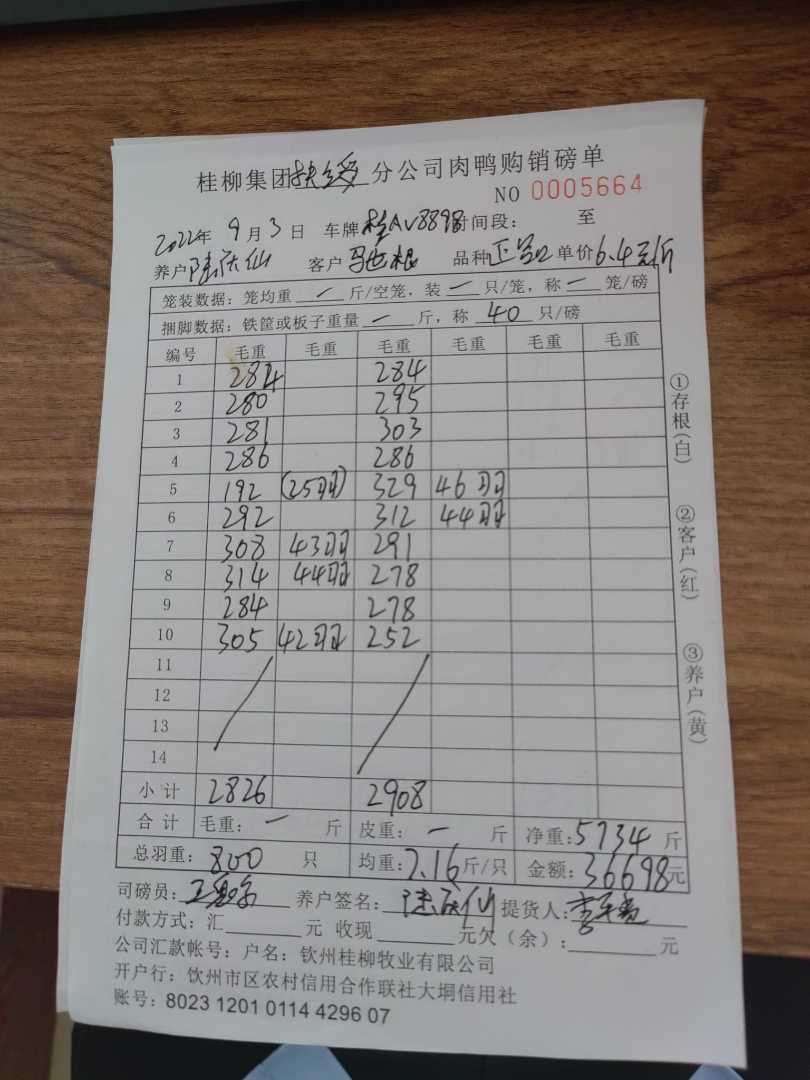 桂柳集团扶绥分公司肉鸭购销磅单
NO 0005664
2022年 9月 3日 车牌桂AV8898时间段: 至
养户 陆庆仙 客户 马也根 品种 正品 单价6.4元/斤
笼装数据: 笼均重 一 斤/空笼, 装 一 只/笼, 称 一 笼/磅
捆脚数据: 铁筐或板子重量 一 斤, 称 40 只/磅
编号 毛重 毛重 毛重 毛重 毛重 毛重
1 284 284
2 280 295
3 281 303
4 286 286
5 192 (25羽) 329 46羽
6 292 312 44羽
7 308 43羽 291
8 314 44羽 278
9 284 278
10 305 42羽 252
11
12
13
14
小计 2826 2908
合计 毛重: 一 斤 皮重: 一 斤 净重:5734 斤
总羽重: 800 只 均重:7.16斤/只 金额:36698元
司磅员: 养户签名: 陆庆仙 提货人:
付款方式: 汇 元 收现 元欠(余): 元
公司汇款帐号: 户名: 钦州桂柳牧业有限公司
开户行: 钦州市区农村信用合作联社大垌信用社
账号: 8023 1201 0114 4296 07
①存根(白)
②客户(红)
③养户(黄)